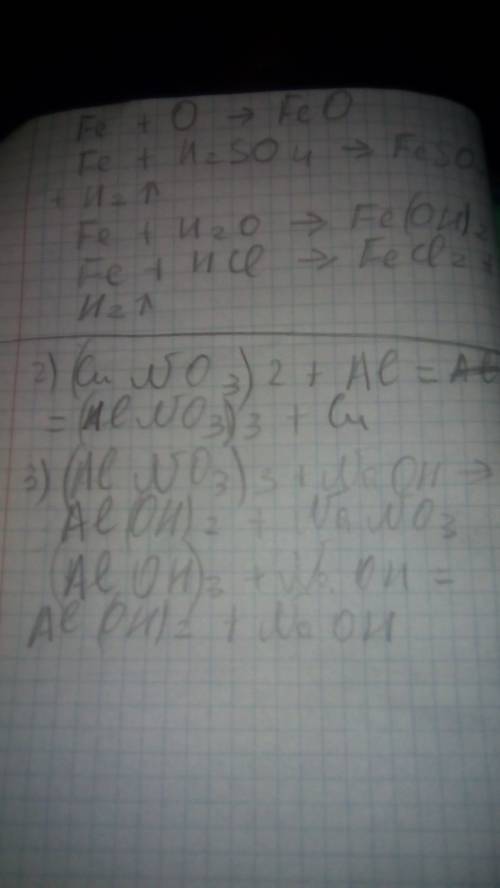 Fe + O → FeO
Fe + H₂SO₄ → FeSO
+ H₂↑
Fe + H₂O → Fe(OH)₂
Fe + HCl → FeCl₂ +
H₂↑
2) (Cu NO₃)2 + Al = Al
= (Al NO₃)₃ + Cu
3) (Al NO₃)₃ + Na OH →
Al(OH)₂ + Na NO₃
(Al OH)₃ + Na OH =
Al (OH)₂ + Na OH